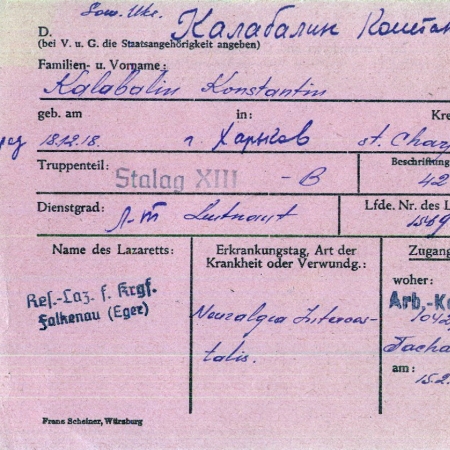 Sow. Ukr.
D. Калабалин Констан
(bei V. u. G. die Staatsangehörigkeit angeben)
Familien- u. Vorname:
Kalabalin Konstantin
geb. am in: Kre
18.12.18. г. Харьков st. Char
Truppenteil: Beschriftung
Stalag XIII - B 42
Dienstgrad: Л-т Leutnant Lfde. Nr. des L
1569
Name des Lazaretts: Erkrankungstag, Art der Zugang
Krankheit oder Verwundg.:
woher:
Res.-Laz. f. Krgf. Arb.-Ko
Falkenau (Eger) Neuralgia Intercos- 1042
talis. Tacha
am:
15.2.
Franz Scheiner, Würzburg